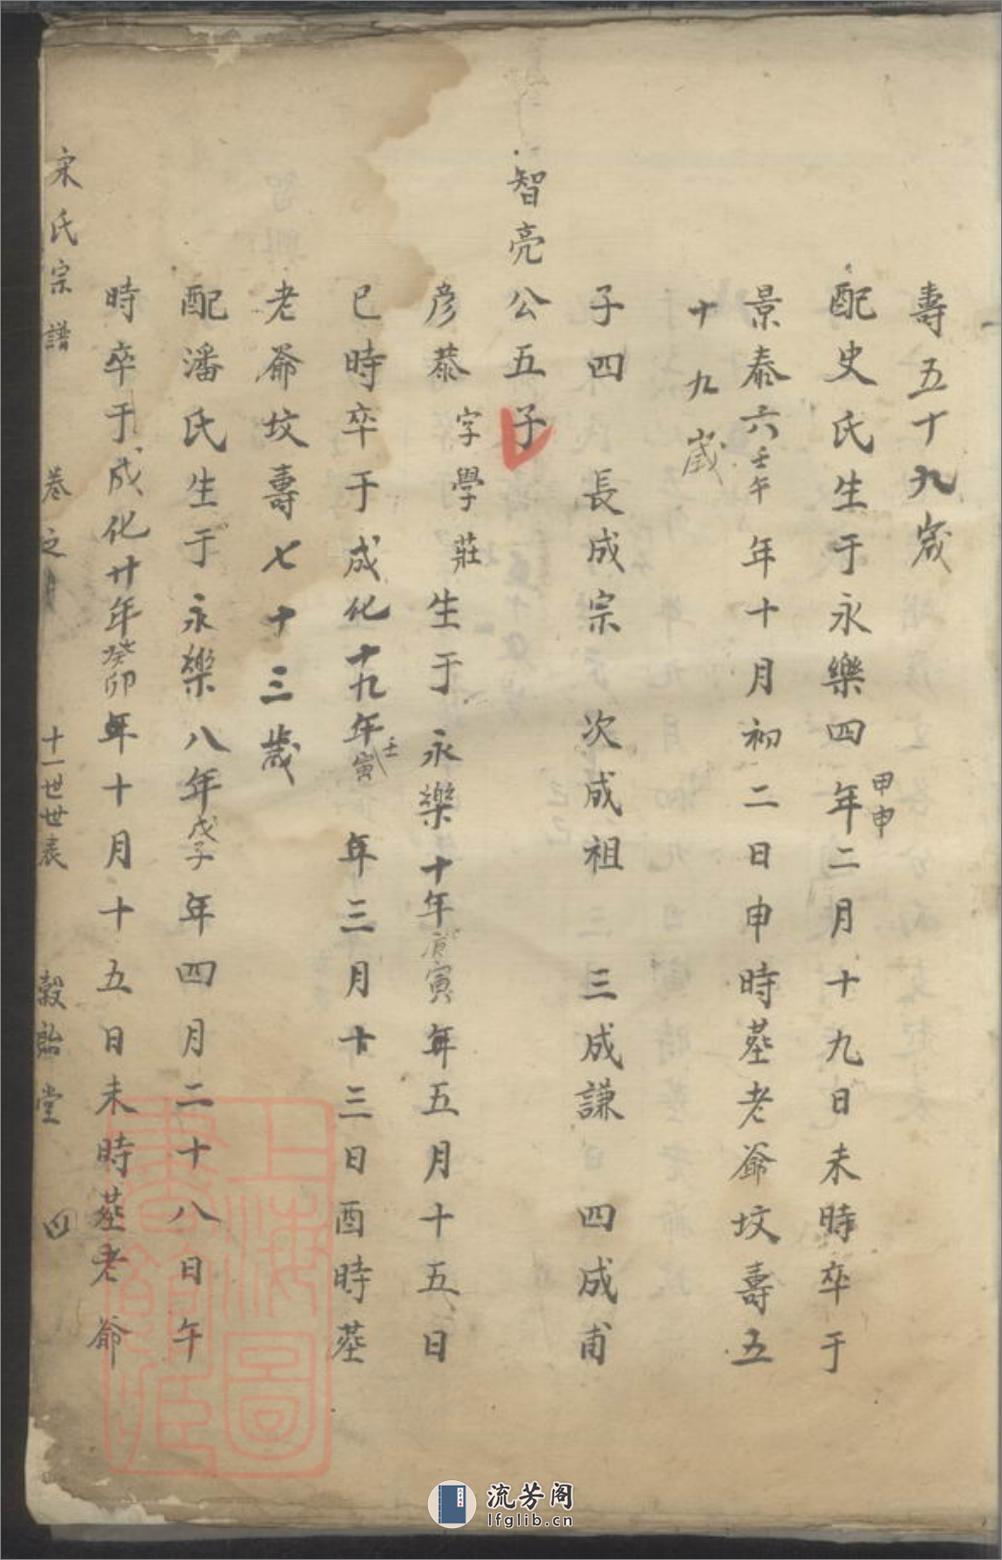 壽五十九歲
配史氏生于永樂四甲申年二月十九日未時卒于
景泰六壬午年十月初二日申時塟老爺坟壽五
十九歲
子四 長成宗 次成祖 三成謙 四成甫
智亮公五子
彦恭字學莊生于永樂十年庚寅年五月十五日
巳時卒于成化十九年壬寅年三月十三日酉時塟
老爺坟壽七十三歲
配潘氏生于永樂八年戊子年四月二十八日午
時卒于成化廿年癸卯年十月十五日未時塟老爺
宋氏宗譜 卷之 十一世世表 穀貽堂 四
上海圖書館藏
流芳阁
lfglib.cn